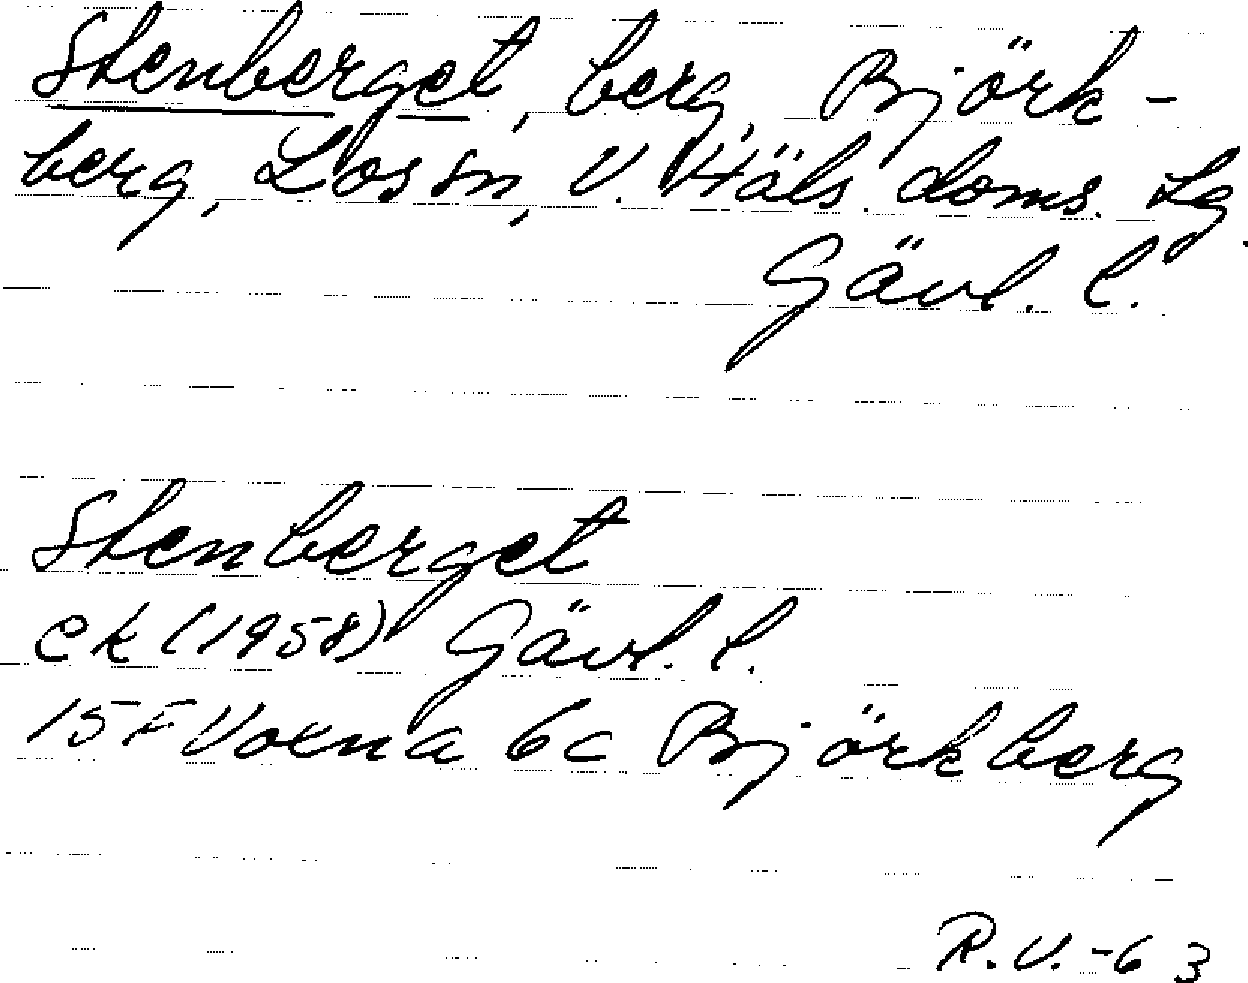 Stenberget, berg, Björk-
berg, Los sn, V. Häls. doms. Lg.
Gävl. l.
Stenberget
ek (1958) Gävl. l.
15F Voxna 6c Björkberg
R.V.-63